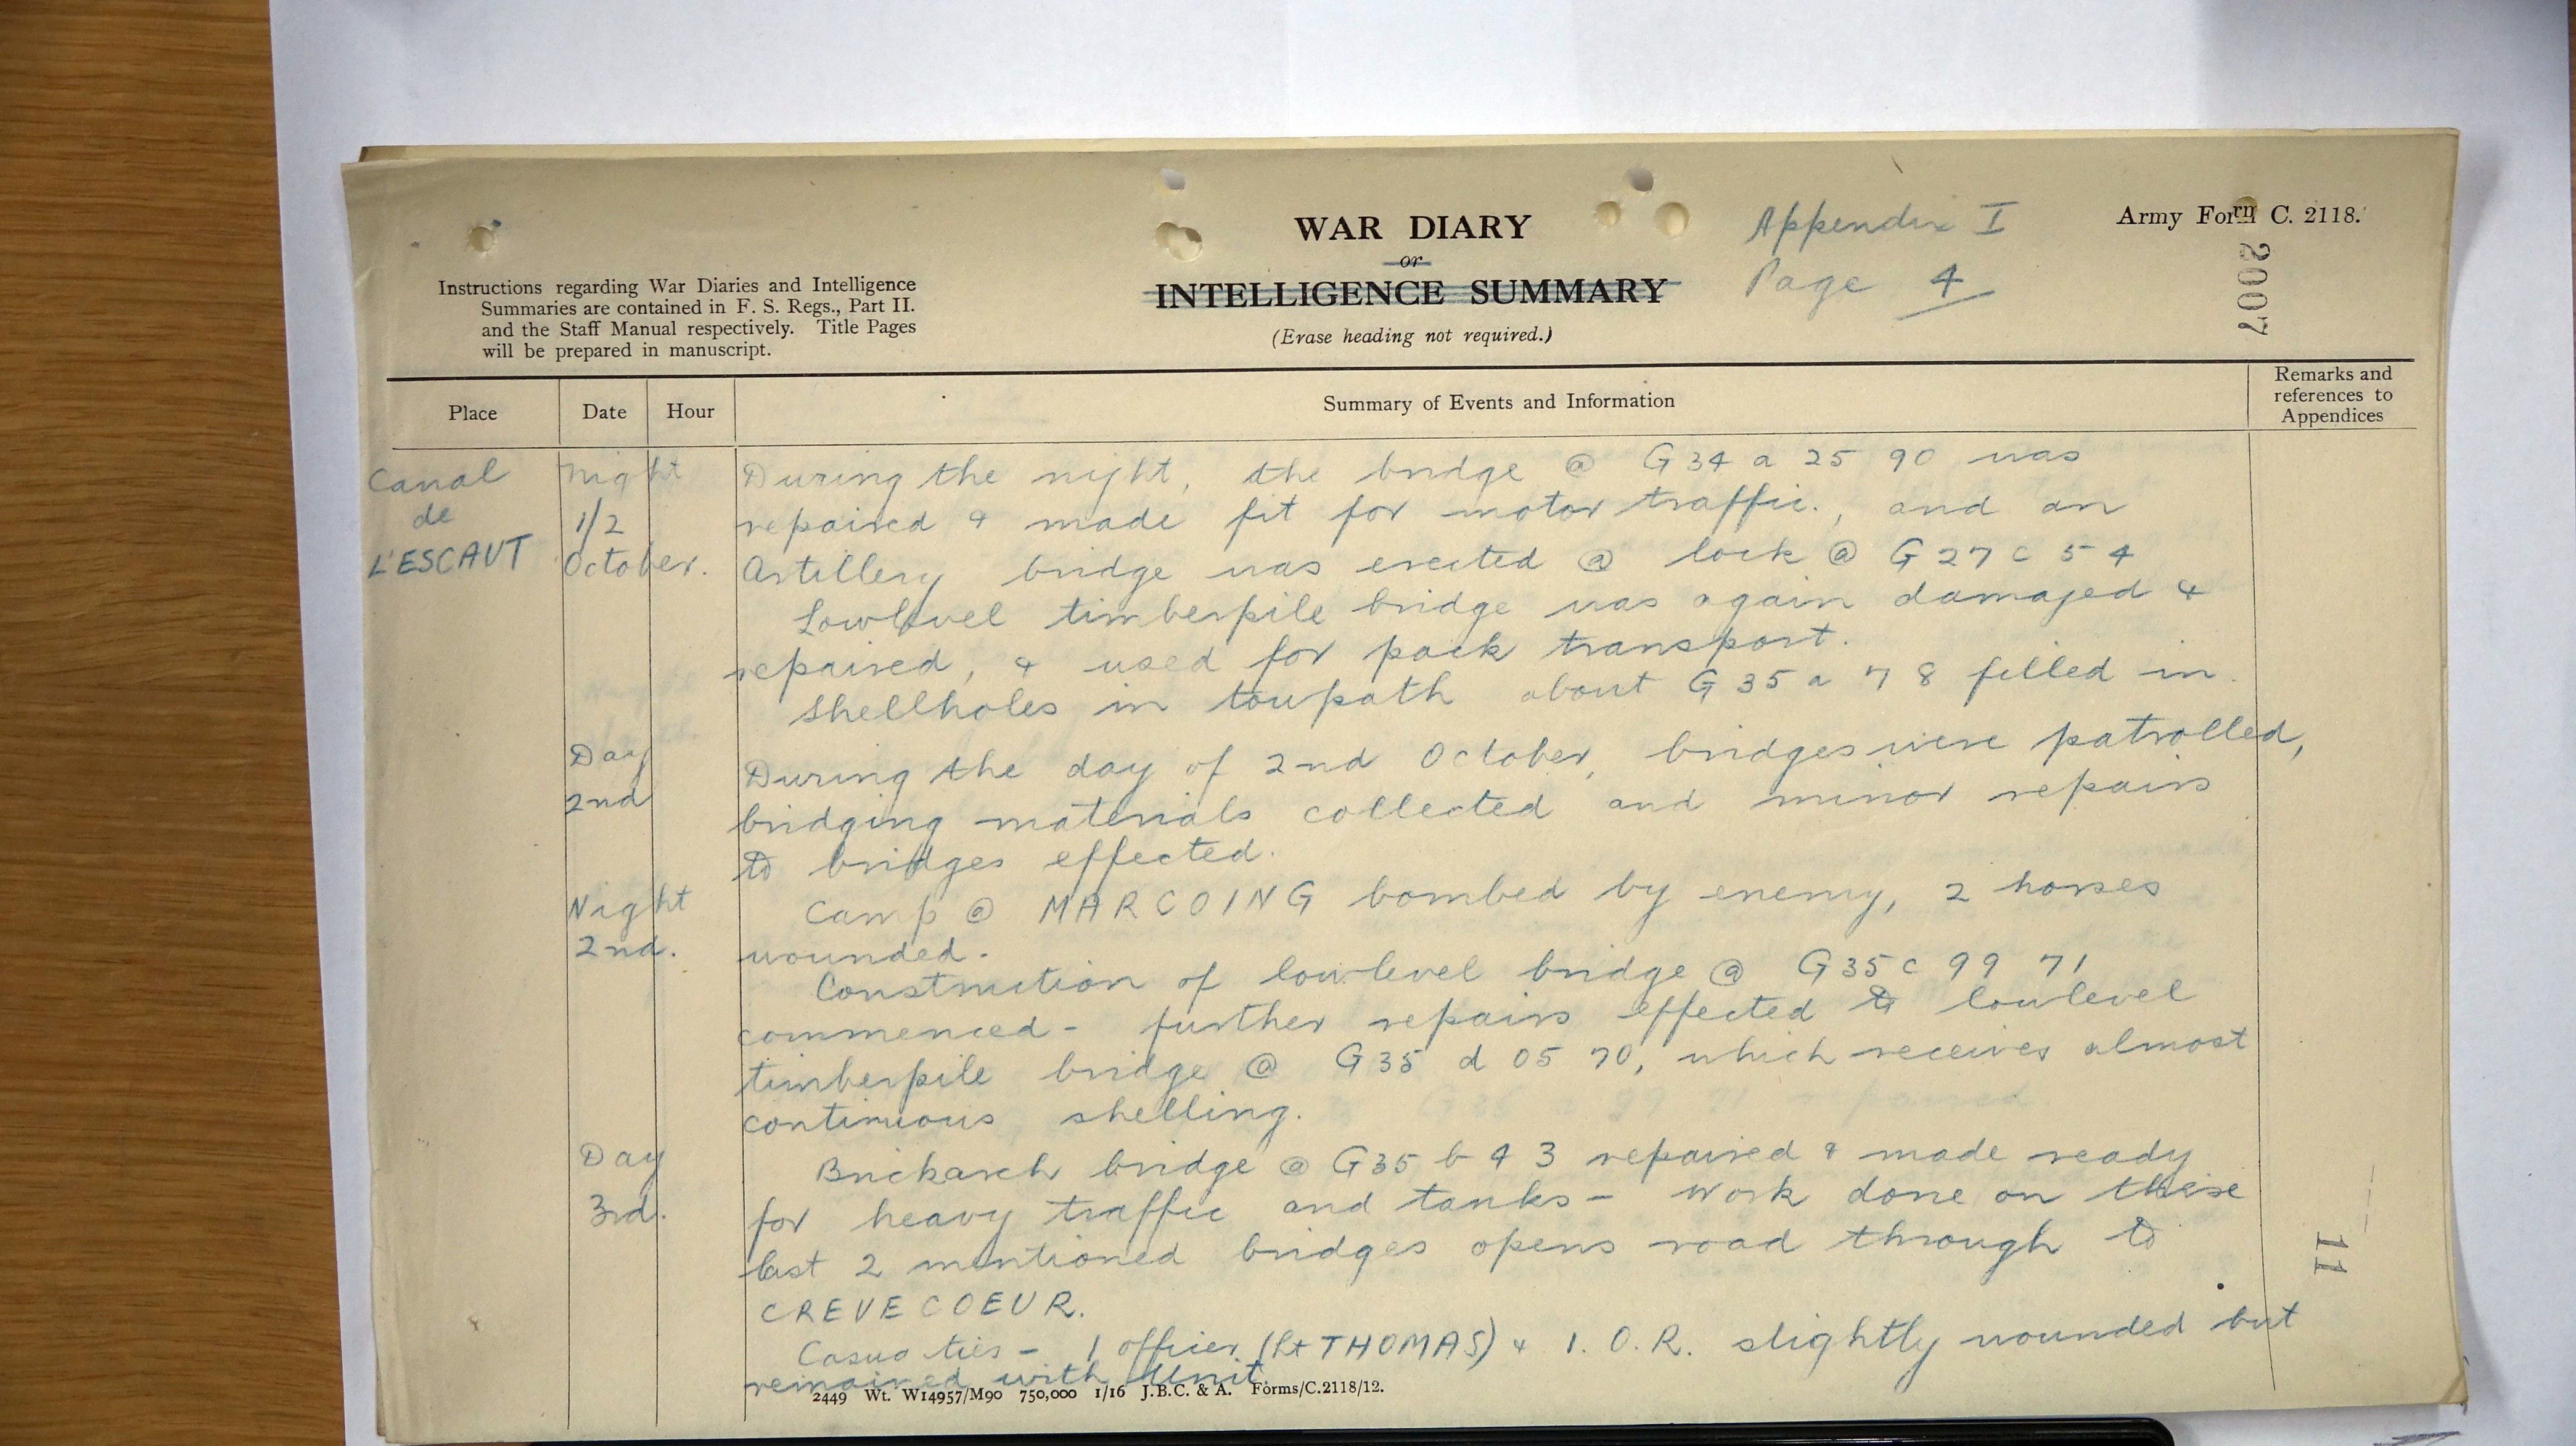 WAR DIARY
or
INTELLIGENCE SUMMARY
(Erase heading not required.)
Appendix I
Page 4
Army Form C. 2118.
2007
Instructions regarding War Diaries and Intelligence
Summaries are contained in F. S. Regs., Part II.
and the Staff Manual respectively. Title Pages
will be prepared in manuscript.
Place
Date
Hour
Summary of Events and Information
Remarks and
references to
Appendices
Canal
de
L'ESCAUT
Night
1/2
October.
During the night, the bridge @ G 34 a 25 90 was
repaired & made fit for motor traffic., and an
Artillery bridge was erected @ lock @ G 27 c 5 4
Lowlevel timberpile bridge was again damaged &
repaired, & used for pack transport.
Shellholes in towpath about G 35 a 7 8 filled in.
Day
2nd
During the day of 2nd October, bridges were patrolled,
bridging materials collected and minor repairs
to bridges effected.
Night
2nd.
Camp @ MARCOING bombed by enemy, 2 horses
wounded.
Construction of lowlevel bridge @ G 35 c 99 71
commenced - further repairs effected to lowlevel
timberpile bridge @ G 35 d 05 70, which receives almost
continuous shelling.
Day
3rd.
Brickarch bridge @ G 35 b 4 3 repaired & made ready
for heavy traffic and tanks - Work done on these
last 2 mentioned bridges opens road through to
CREVECOEUR.
Casua ties - 1 officer (Lt THOMAS) & 1. O.R. slightly wounded but
remained with Unit.
2449 Wt. W14957/M90 750,000 1/16 J.B.C. & A. Forms/C.2118/12.
11